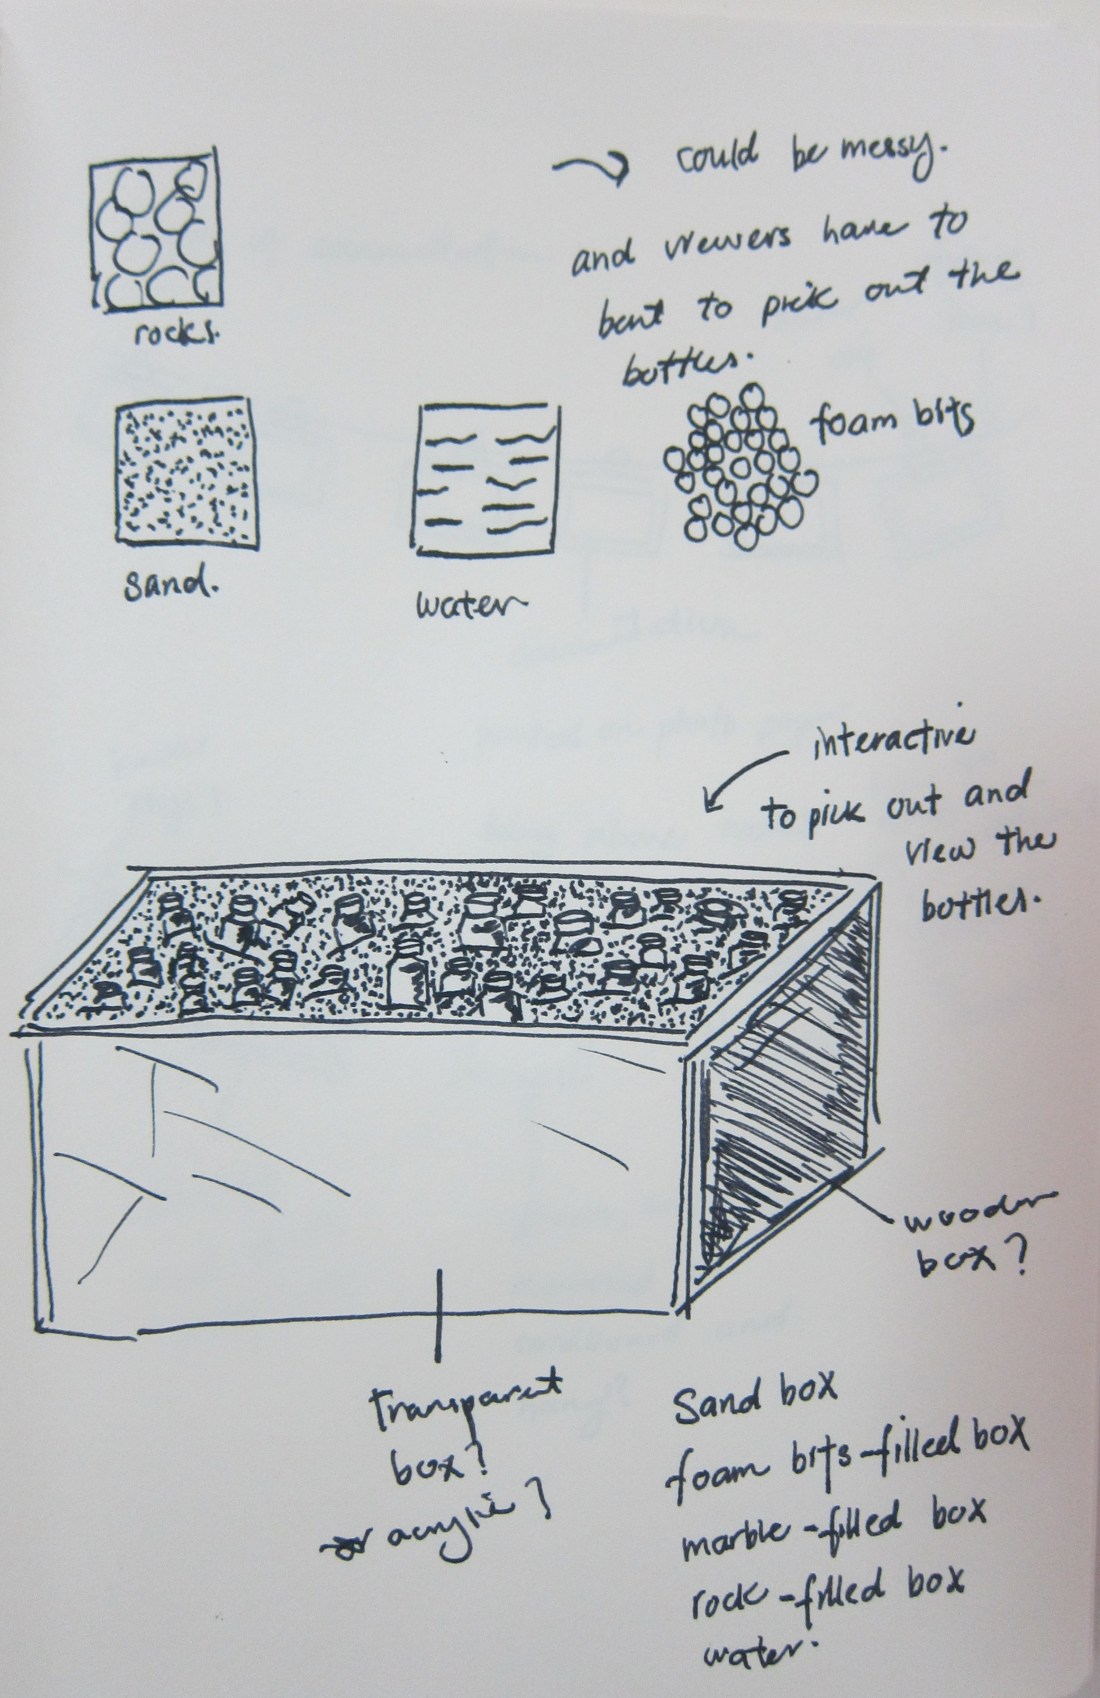 could be messy.
and viewers have to
bent to pick out the
bottles.
rocks.
foam bits
sand.
water
interactive
to pick out and
view the
bottles.
wooden
box?
transparent
box?
or acrylic?
Sand box
foam bits-filled box
marble-filled box
rock-filled box
water.